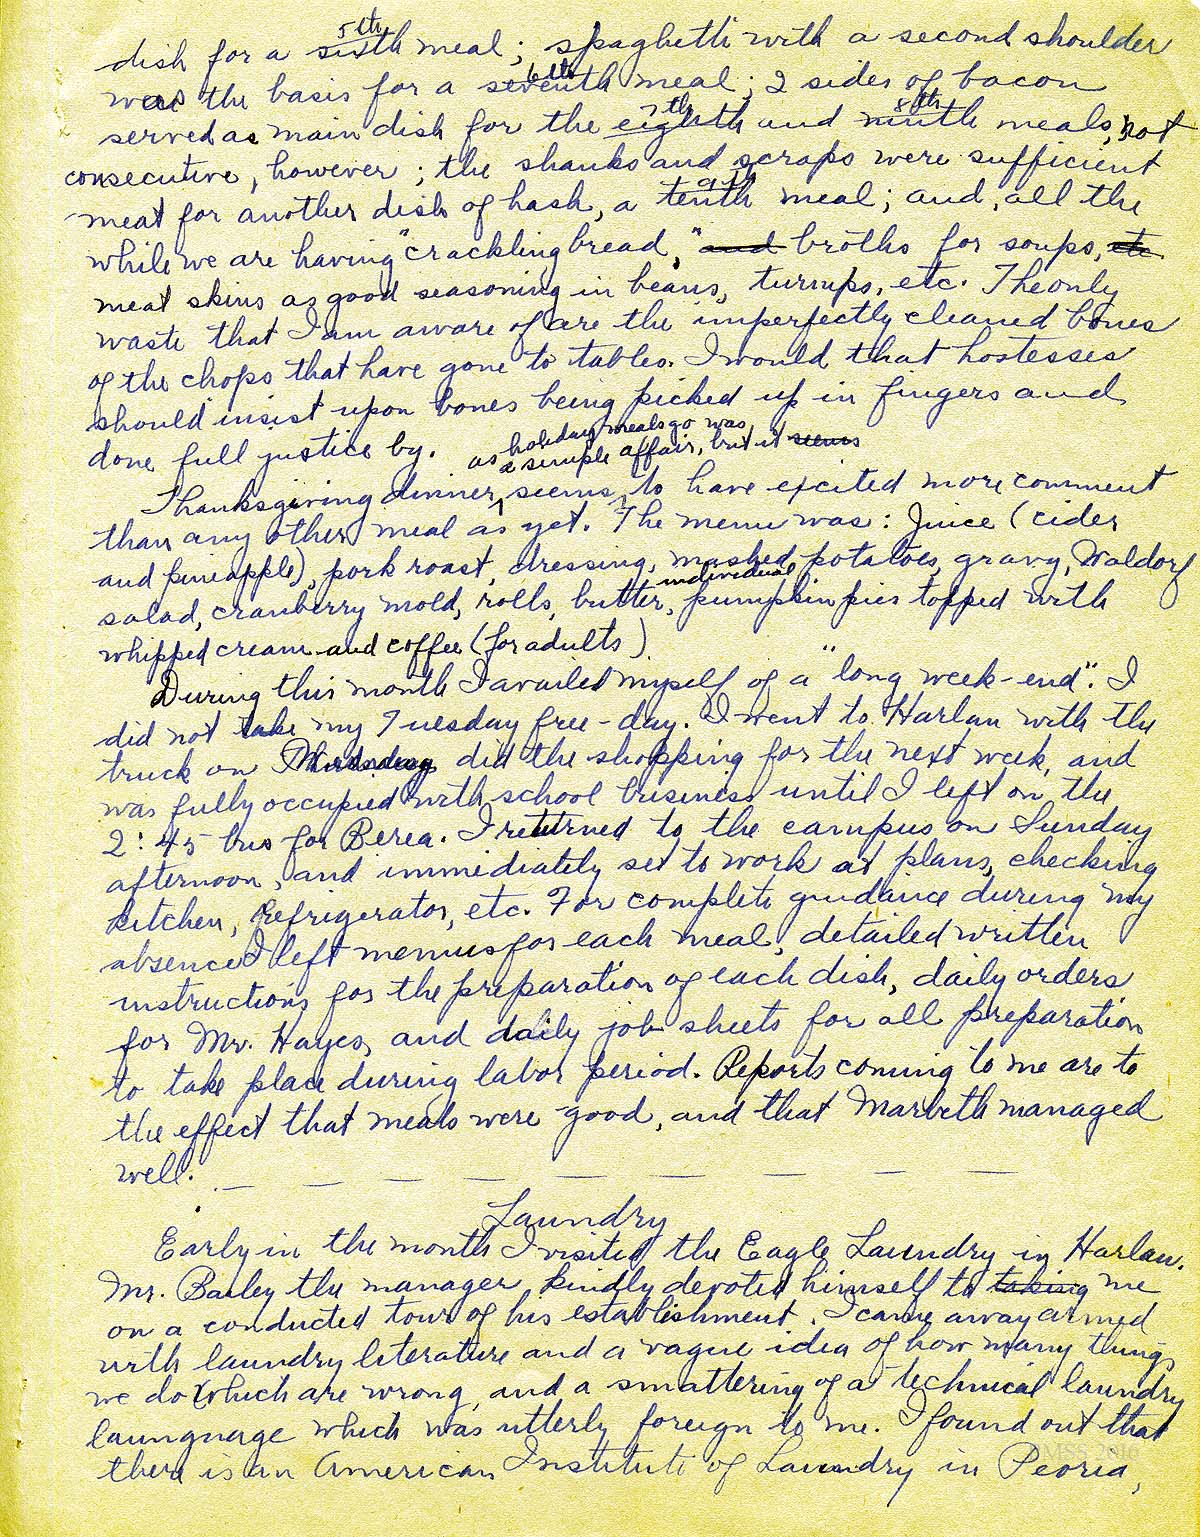 dish for a sixth 5th meal; spaghetti with a second shoulder
was the basis for a seventh 6th meal; 2 sides of bacon
served as main dish for the eighth 7th and ninth 8th meals, not
consecutive, however; the shanks and scraps were sufficient
meat for another dish of hash, a tenth 9th meal; and, all the
while we are having "crackling bread," and broths for soups, etc
meat skins as good seasoning in beans, turnips, etc. The only
waste that I am aware of are the imperfectly cleaned bones
of the chops that have gone to tables. I would that hostesses
should insist upon bones being picked up in fingers and
done full justice by.
as holiday meals go was
a simple affair, but it seems
Thanksgiving dinner, seems, to have excited more comment
than any other meal as yet. The menu was: Juice (cider
and pineapple), pork roast, dressing, mashed potatoes, gravy, Waldorf
salad, cranberry mold, rolls, butter, individual pumpkin pies topped with
whipped cream and coffee (for adults)
During this month I availed myself of a "long week-end". I
did not take my Tuesday free-day. I went to Harlan with the
truck on Thursday did the shopping for the next week, and
was fully occupied with school business until I left on the
2:45 bus for Berea. I returned to the campus on Sunday
afternoon, and immediately set to work at plans, checking
kitchen, refrigerator, etc. For complete guidance during my
absence I left menus for each meal, detailed written
instructions for the preparation of each dish, daily orders
for Mr. Hayes, and daily job sheets for all preparation
to take place during labor period. Reports coming to me are to
the effect that meals were good, and that Marbeth managed
well.
Laundry
Early in the month I visited the Eagle Laundry in Harlan.
Mr. Bailey the manager kindly devoted himself to taking me
on a conducted tour of his establishment. I came away armed
with laundry literature and a vague idea of how many things
we do which are wrong, and a smattering of a technical laundry
laungnage which was utterly foreign to me. I found out that
there is an American Institute of Laundry in Peoria,